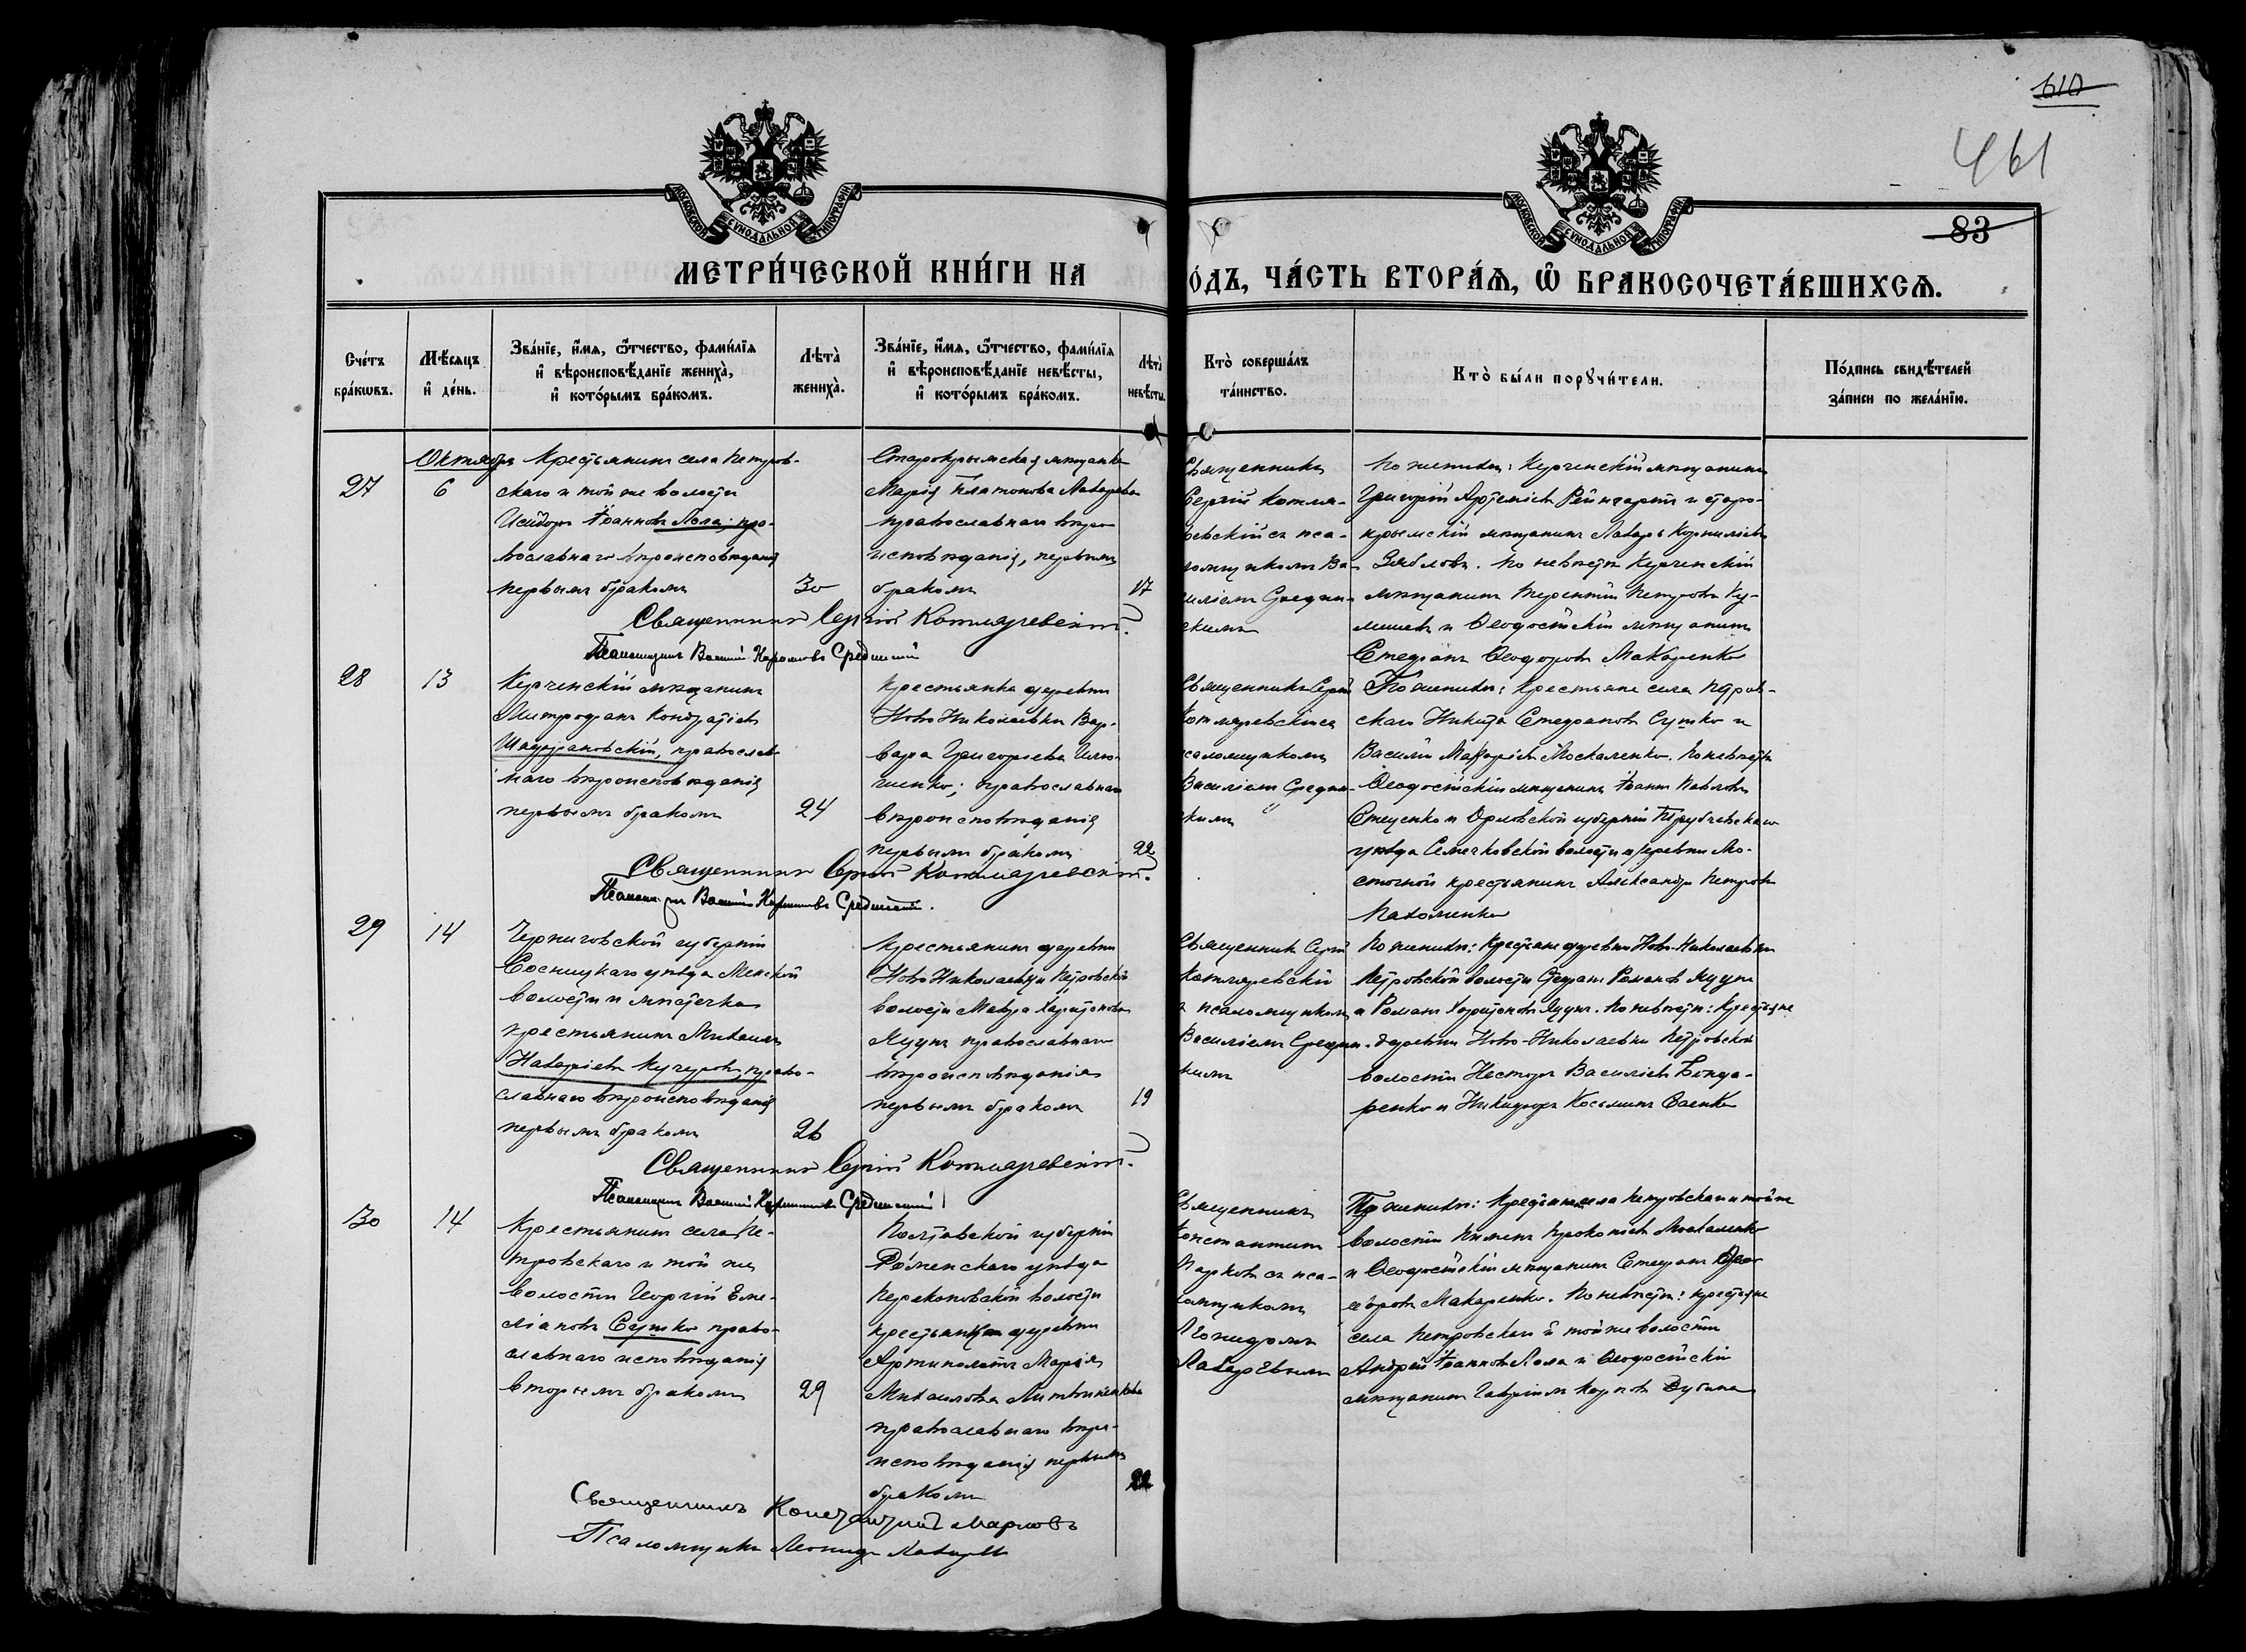 610
461
83
МОСКОВСКОЙ СѴНОДАЛЬНОЙ ТИПОГРАФІИ
МОСКОВСКОЙ СѴНОДАЛЬНОЙ ТИПОГРАФІИ
МЕТРИ́ЧЕСКОЙ КНИ́ГИ НА
О́ДЪ, ЧА́СТЬ ВТОРА́Ѧ, Ѽ БРАКОСОЧЕТА́ВШИХСѦ.
Сче́тъ
бра́кѡвъ.
Мѣ́сяцъ
и҆ де́нь.
Зва́нїе, и҆́мѧ, ѻ҆́тчество, фами́лїѧ
и҆ вѣроисповѣ́данїе жениха̀,
и҆ кото́рымъ бра́комъ.
Лѣта̀
жениха̀.
Зва́нїе, и҆́мѧ, ѻ҆́тчество, фами́лїѧ
и҆ вѣроисповѣ́данїе невѣ́сты,
и҆ кото́рымъ бра́комъ.
Лѣта̀
невѣ́сты.
Кто̀ соверша́лъ
та́инство.
Кто̀ бы́ли порꙋчи́тели.
По́дпись свидѣ́телей
за́писи по жела́нїю.
Октября
27
6
Крестьянинъ села Петров-
скаго и той же волости
Исидоръ Іоанновъ Лола; пра-
вославнаго вѣроисповѣданія
первымъ бракомъ
30
Старокрымская мѣщанка
Марія Платонова Лазарева
православнаго вѣро-
исповѣданія, первымъ
бракомъ
17
Священникъ
Сергій Котля-
ревскій съ пса-
ломщикомъ Ва-
силіемъ Средин-
скимъ
По женихѣ: Керченскій мѣщанинъ
Григорій Артемьевъ и старо-
крымскій мѣщанинъ Лазарь Корниліевъ
Зябловъ. По невѣстѣ Керченскій
мѣщанинъ Терентій Петровъ
и Ѳеодосійскій мѣщанинъ
Стефанъ Ѳеодоровъ Макаренко
Священникъ Сергій Котляревскій.
Псаломщикъ Василій Срединскій
28
13
Керченскій мѣщанинъ
Митрофанъ Кондратіевъ
православ-
наго вѣроисповѣданія
первымъ бракомъ
24
Крестьянка деревни
Ново Николаевки Вар-
вара Григорьева Илю-
шенко; православнаго
вѣроисповѣданія
первымъ бракомъ
22
Священникъ Сергій
Котляревскій съ
псаломщикомъ
Василіемъ Средин-
скимъ
По женихѣ: Крестьяне села Петров-
скаго Никита Стефановъ Сушко и
Василій Макаріевъ Москаленко. По невѣстѣ
Ѳеодосійскій мѣщанинъ Іоаннъ Павловъ
Стеценко и Орловской губерніи Трубчевскаго
уѣзда Семячковской волости деревни
крестьянинъ Александръ Петровъ
Пахоменко
Священникъ Сергій Котляревскій.
Псаломщикъ Василій Срединскій.
29
14
Черниговской губерніи
Сосницкаго уѣзда Менской
волости и мѣстечка
крестьянинъ Михаилъ
Назаріевъ Кучеровъ, право-
славнаго вѣроисповѣданія
первымъ бракомъ
26
Крестьянинъ деревни
Ново Николаевки Петровской
волости Мавра Харитонова
Яцунъ православнаго
вѣроисповѣданія
первымъ бракомъ
19
Священникъ Сергій
Котляревскій
съ псаломщикомъ
Василіемъ Средин-
скимъ
По женихѣ: Крестьяне деревни Ново-Николаевки
Петровской волости Стефанъ Романовъ Яцунъ
и Романъ Харитоновъ Яцунъ. По невѣстѣ: Крестьяне
деревни Ново-Николаевки Петровской
волости Несторъ Василіевъ Бонда-
ренко и Никифоръ Косьминъ Саенко
Священникъ Сергій Котляревскій.
Псаломщикъ Василій Срединскій
30
14
Крестьянинъ села Пе-
тровскаго и той же
волости Георгій Еме-
ліановъ Сушко право-
славнаго исповѣданія
вторымъ бракомъ
29
Полтавской губерніи
Роменскаго уѣзда
Перекоповской волости
крестьянка деревни
Артиполотъ Марія
Михаилова Литвиненкова
православнаго вѣро-
исповѣданія первымъ
бракомъ
22
Священникъ
Константинъ
Марковъ съ пса-
ломщикомъ
Леонидомъ
Лазаревымъ
По женихѣ: Крестьяне села Петровскаго и той же
волости Пименъ Прокопіевъ Москаленко
и Ѳеодосійскій мѣщанинъ Стефанъ Ѳео-
доровъ Макаренко. По невѣстѣ: крестьяне
села Петровскаго и той же волости
Андрей Іоанновъ Лола и Ѳеодосійскій
мѣщанинъ Гавріилъ Карповъ Дубина
Священникъ Константинъ Марковъ
Псаломщикъ Леонидъ Лазаревъ